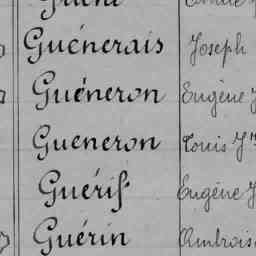 Guénerais Joseph
Guéneron Eugène J
Gueneron Louis Jn
Guérif Eugène J
Guérin Ambrois